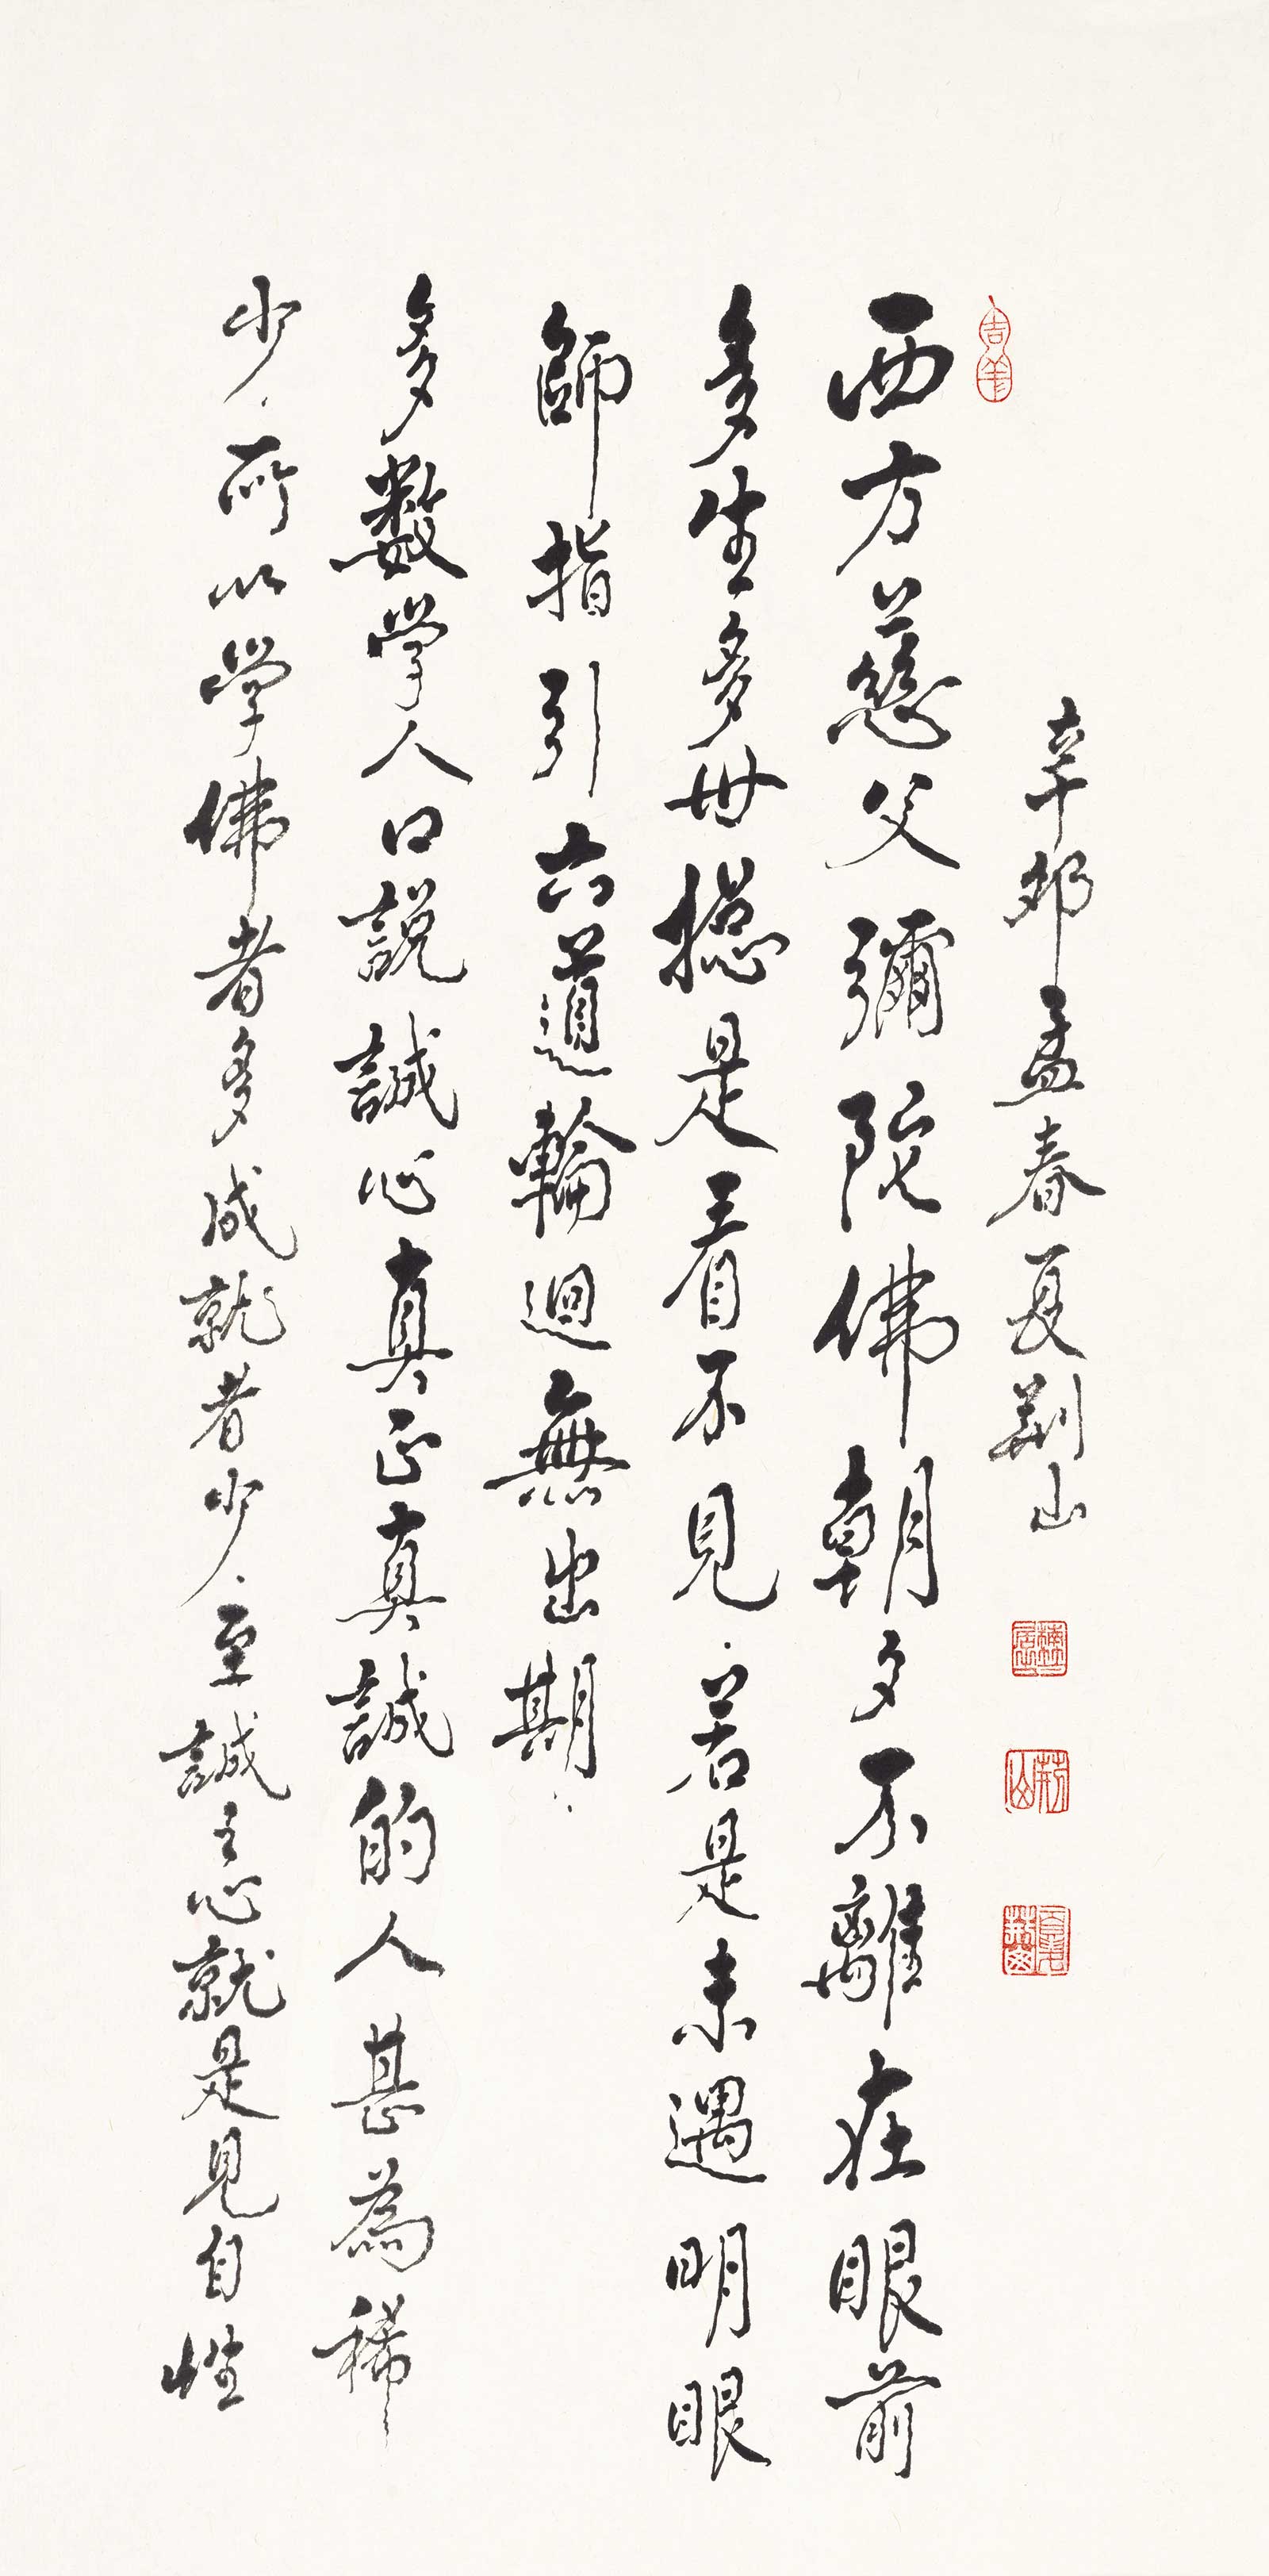 吉羊
辛卯孟春夏荊山
荊山
西方慈父彌陀佛朝夕不離在眼前
多生多世摠是看不見若是未遇明眼
師指引六道輪迴無出期
多數學人口說誠心真正真誠的人甚為稀
少所以學佛者多成就者少至誠之心就是見自性